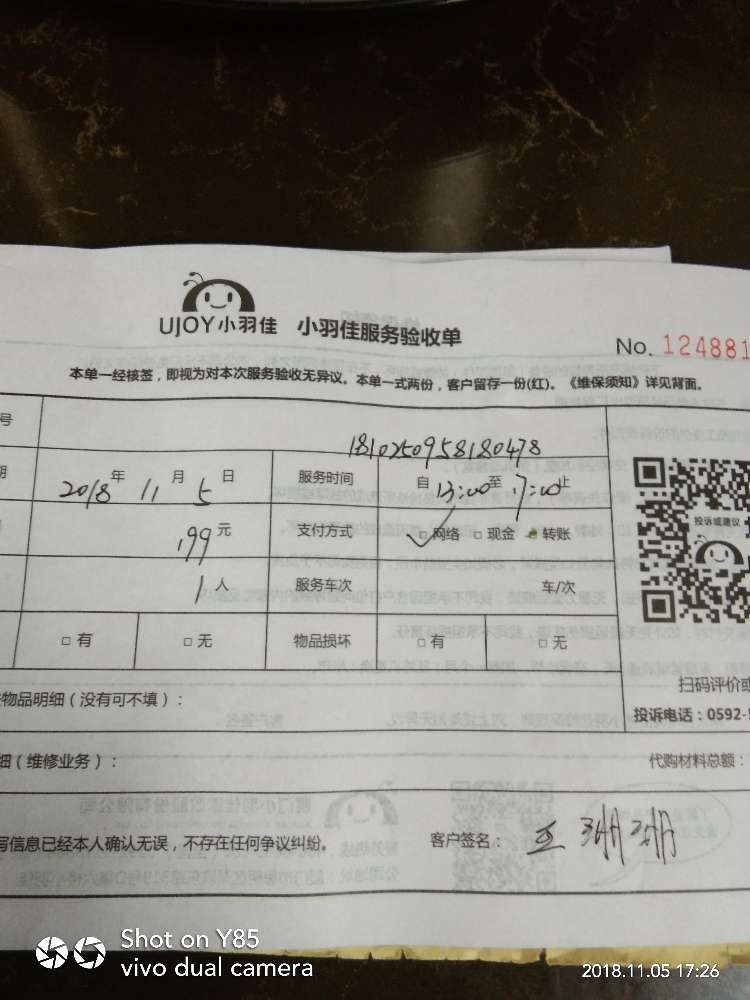 UJOY小羽佳 小羽佳服务验收单
No. 124881
本单一经核签，即视为对本次服务验收无异议。本单一式两份，客户留存一份(红)。《维保须知》详见背面。
号
1810250958180478
期 2018年 11月 5日 服务时间 自13:00至17:00止
199元 支付方式 □网络 □现金 □转账
投诉或建议
1人 服务车次 车/次
□有 □无 物品损坏 □有 □无
扫码评价或
物品明细（没有可不填）：
投诉电话：0592-5
细（维修业务）： 代购材料总额：
写信息已经本人确认无误，不存在任何争议纠纷。 客户签名：王珊珊
Shot on Y85
vivo dual camera
2018.11.05 17:26